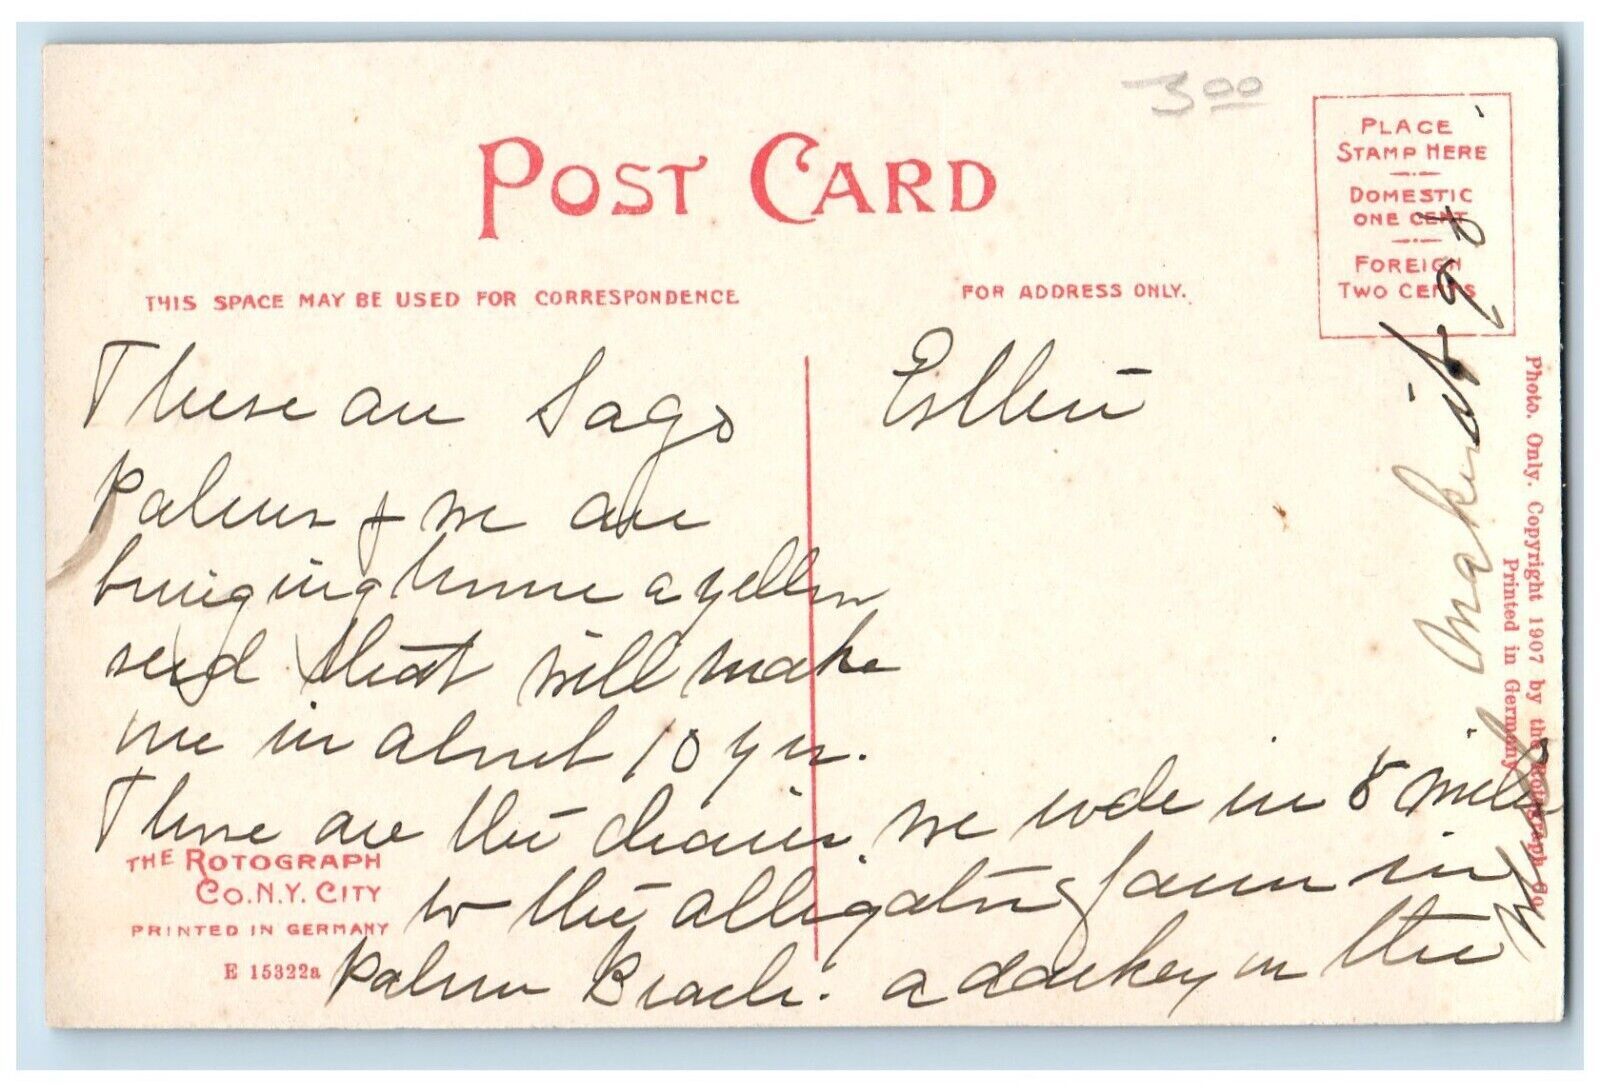 3.00
POST CARD
PLACE
STAMP HERE
DOMESTIC
ONE CENT
FOREIGN
TWO CENTS
THIS SPACE MAY BE USED FOR CORRESPONDENCE
FOR ADDRESS ONLY.
These are Sago
Palms & we are
bringing home a yellow
seed that will make
one in about 10 yrs.
These are the chairs we rode in 8 miles
to the alligator farm in
Palm Beach. a darkey in the
back making it go.
THE ROTOGRAPH
CO. N.Y. CITY
PRINTED IN GERMANY
E 15322a
Photo. Only. Copyright 1907 by the Rotograph Co.
Printed in Germany